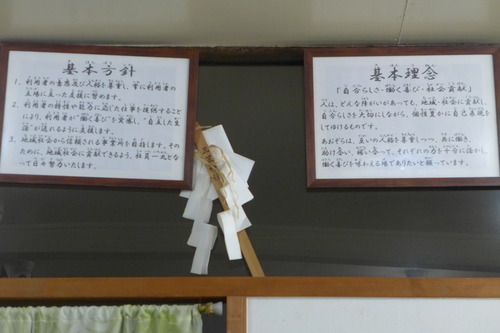 基本方針
1. 利用者の意思及び人格を尊重し、常に利用者の
立場に立った支援に努めます。
2. 利用者の特性や能力に応じた仕事を提供すること
により、利用者が“働く喜び”を実感し、“自立した生
活”が送れるように支援します。
3. 地域社会から信頼される事業所を目指します。その
ために、地域社会に貢献できるよう、社員一丸となっ
て日々努力いたします。
基本理念
「自分らしさ・働く喜び・社会貢献」
人は、どんな障がいがあっても、地域・社会に貢献し、
自分らしさを大切にしながら、個性豊かに自己表現を
してゆけるものです。
あおぞらは、互いの人格を尊重しつつ、共に働き、
助け合い、補い合って、それぞれの力を十分に活かし、
働く喜びを味わえる場でありたいと願っています。